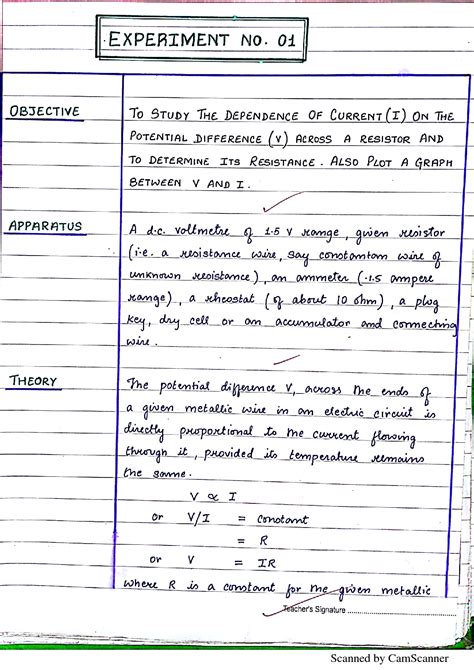 EXPERIMENT NO. 01
OBJECTIVE
TO STUDY THE DEPENDENCE OF CURRENT (I) ON THE
POTENTIAL DIFFERENCE (V) ACROSS A RESISTOR AND
TO DETERMINE ITS RESISTANCE. ALSO PLOT A GRAPH
BETWEEN V AND I.
APPARATUS
A d.c. voltmetre of 1.5 V range, given resistor
(i.e. a resistance wire, say constantam wire of
unknown resistance), an ammeter (.1.5 ampere
range), a rheostat (of about 10 ohm), a plug
key, dry cell or an accumulator and connecting
wire.
THEORY
The potential difference V, across the ends of
a given metallic wire in an electric circuit is
directly proportional to the current flowing
through it, provided its temperature remains
the same.
V ∝ I
or V/I = constant
= R
or V = IR
where R is a constant for the given metallic
Teacher's Signature ..............................
Scanned by CamScanner